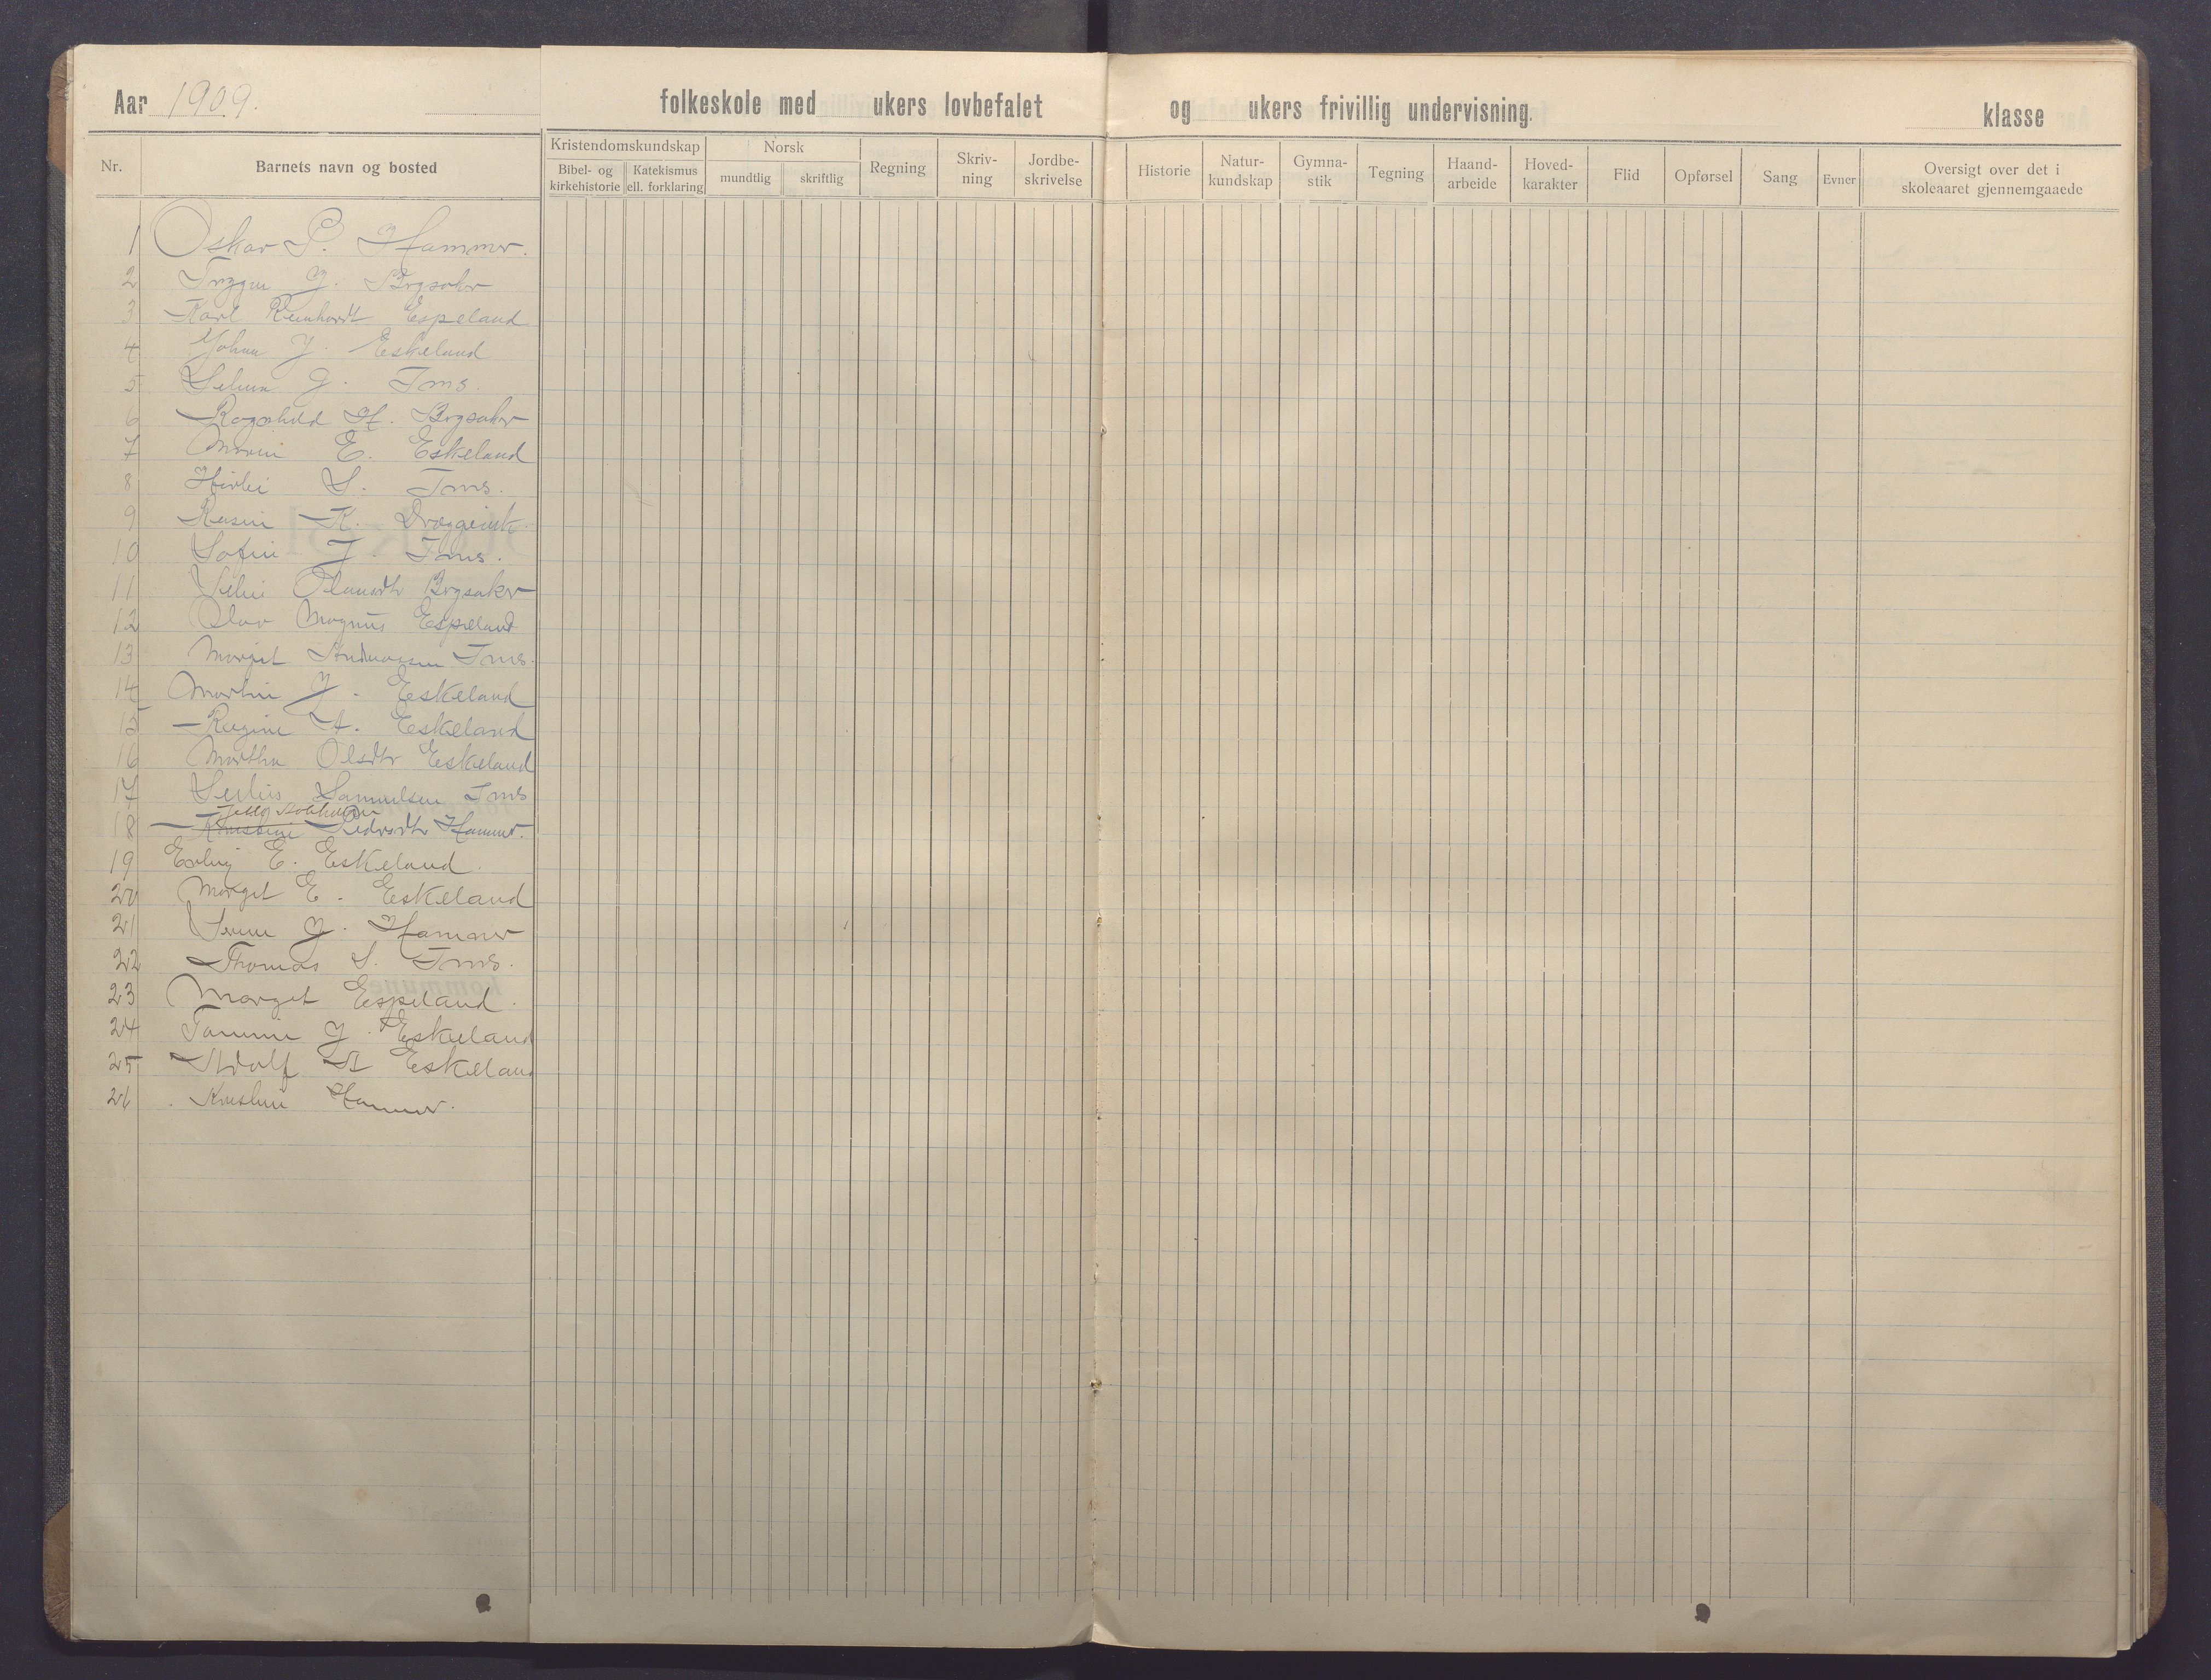 Aar 1909.
folkeskole med ukers lovbefalet og ukers frivillig undervisning. klasse
Nr. Barnets navn og bosted
Kristendomskundskap
Bibel- og kirkehistorie
Katekismus ell. forklaring
Norsk
mundtlig
skriftlig
Regning
Skriv-
ning
Jordbe-
skrivelse
Historie
Natur-
kundskap
Gymna-
stik
Tegning
Haand-
arbeide
Hoved-
karakter
Flid
Opførsel
Sang
Evner
Oversigt over det i
skoleaaret gjennemgaaede
1 Oskar P. Hammer.
2 Trygve J. Brysaker
3 Karl Reinhardt Espeland
4 Johan J. Eskeland
5 J. Ims.
6 Ragnhild H. Brysaker
7 E. Eskeland
8 S. Ims.
9 Rasin K.
10 Sofie J. Ims.
11 Olausdtr Brysaker
12 Olav Magnus Espeland
13 Margit Andreassen Ims.
14 Martin J. Eskeland
15 Regine A. Eskeland
16 Martha Olsdtr Eskeland
17 Samuelsen Ims
18 Hammer.
19 Erling E. Eskeland.
20 Margit E. Eskeland
21 J. Hammer
22 Thomas S. Ims.
23 Marget Espeland.
24 J. Eskeland
25 Adolf A Eskeland
26 Hammer.